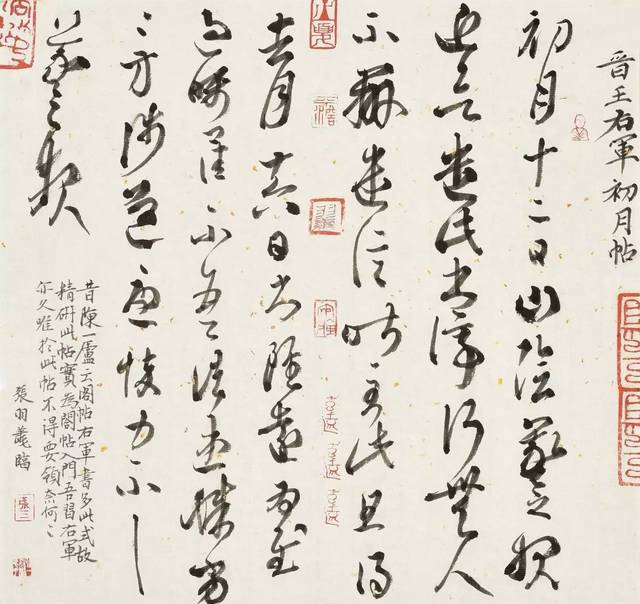 晋王右軍初月帖
初月十二日山陰羲之報
近欲遣此書停行無人
不辦遣信昨至此且得
去月十六日書雖遠為慰
過囑卿佳不吾諸患殊劣
〻方涉道憂悴力不一
〻羲之報
昔陳一廬云閣帖右軍書多此式故
精研此帖實為閣帖入門吾習右軍
亦久唯於此帖不得要領奈何〻
張羽臨